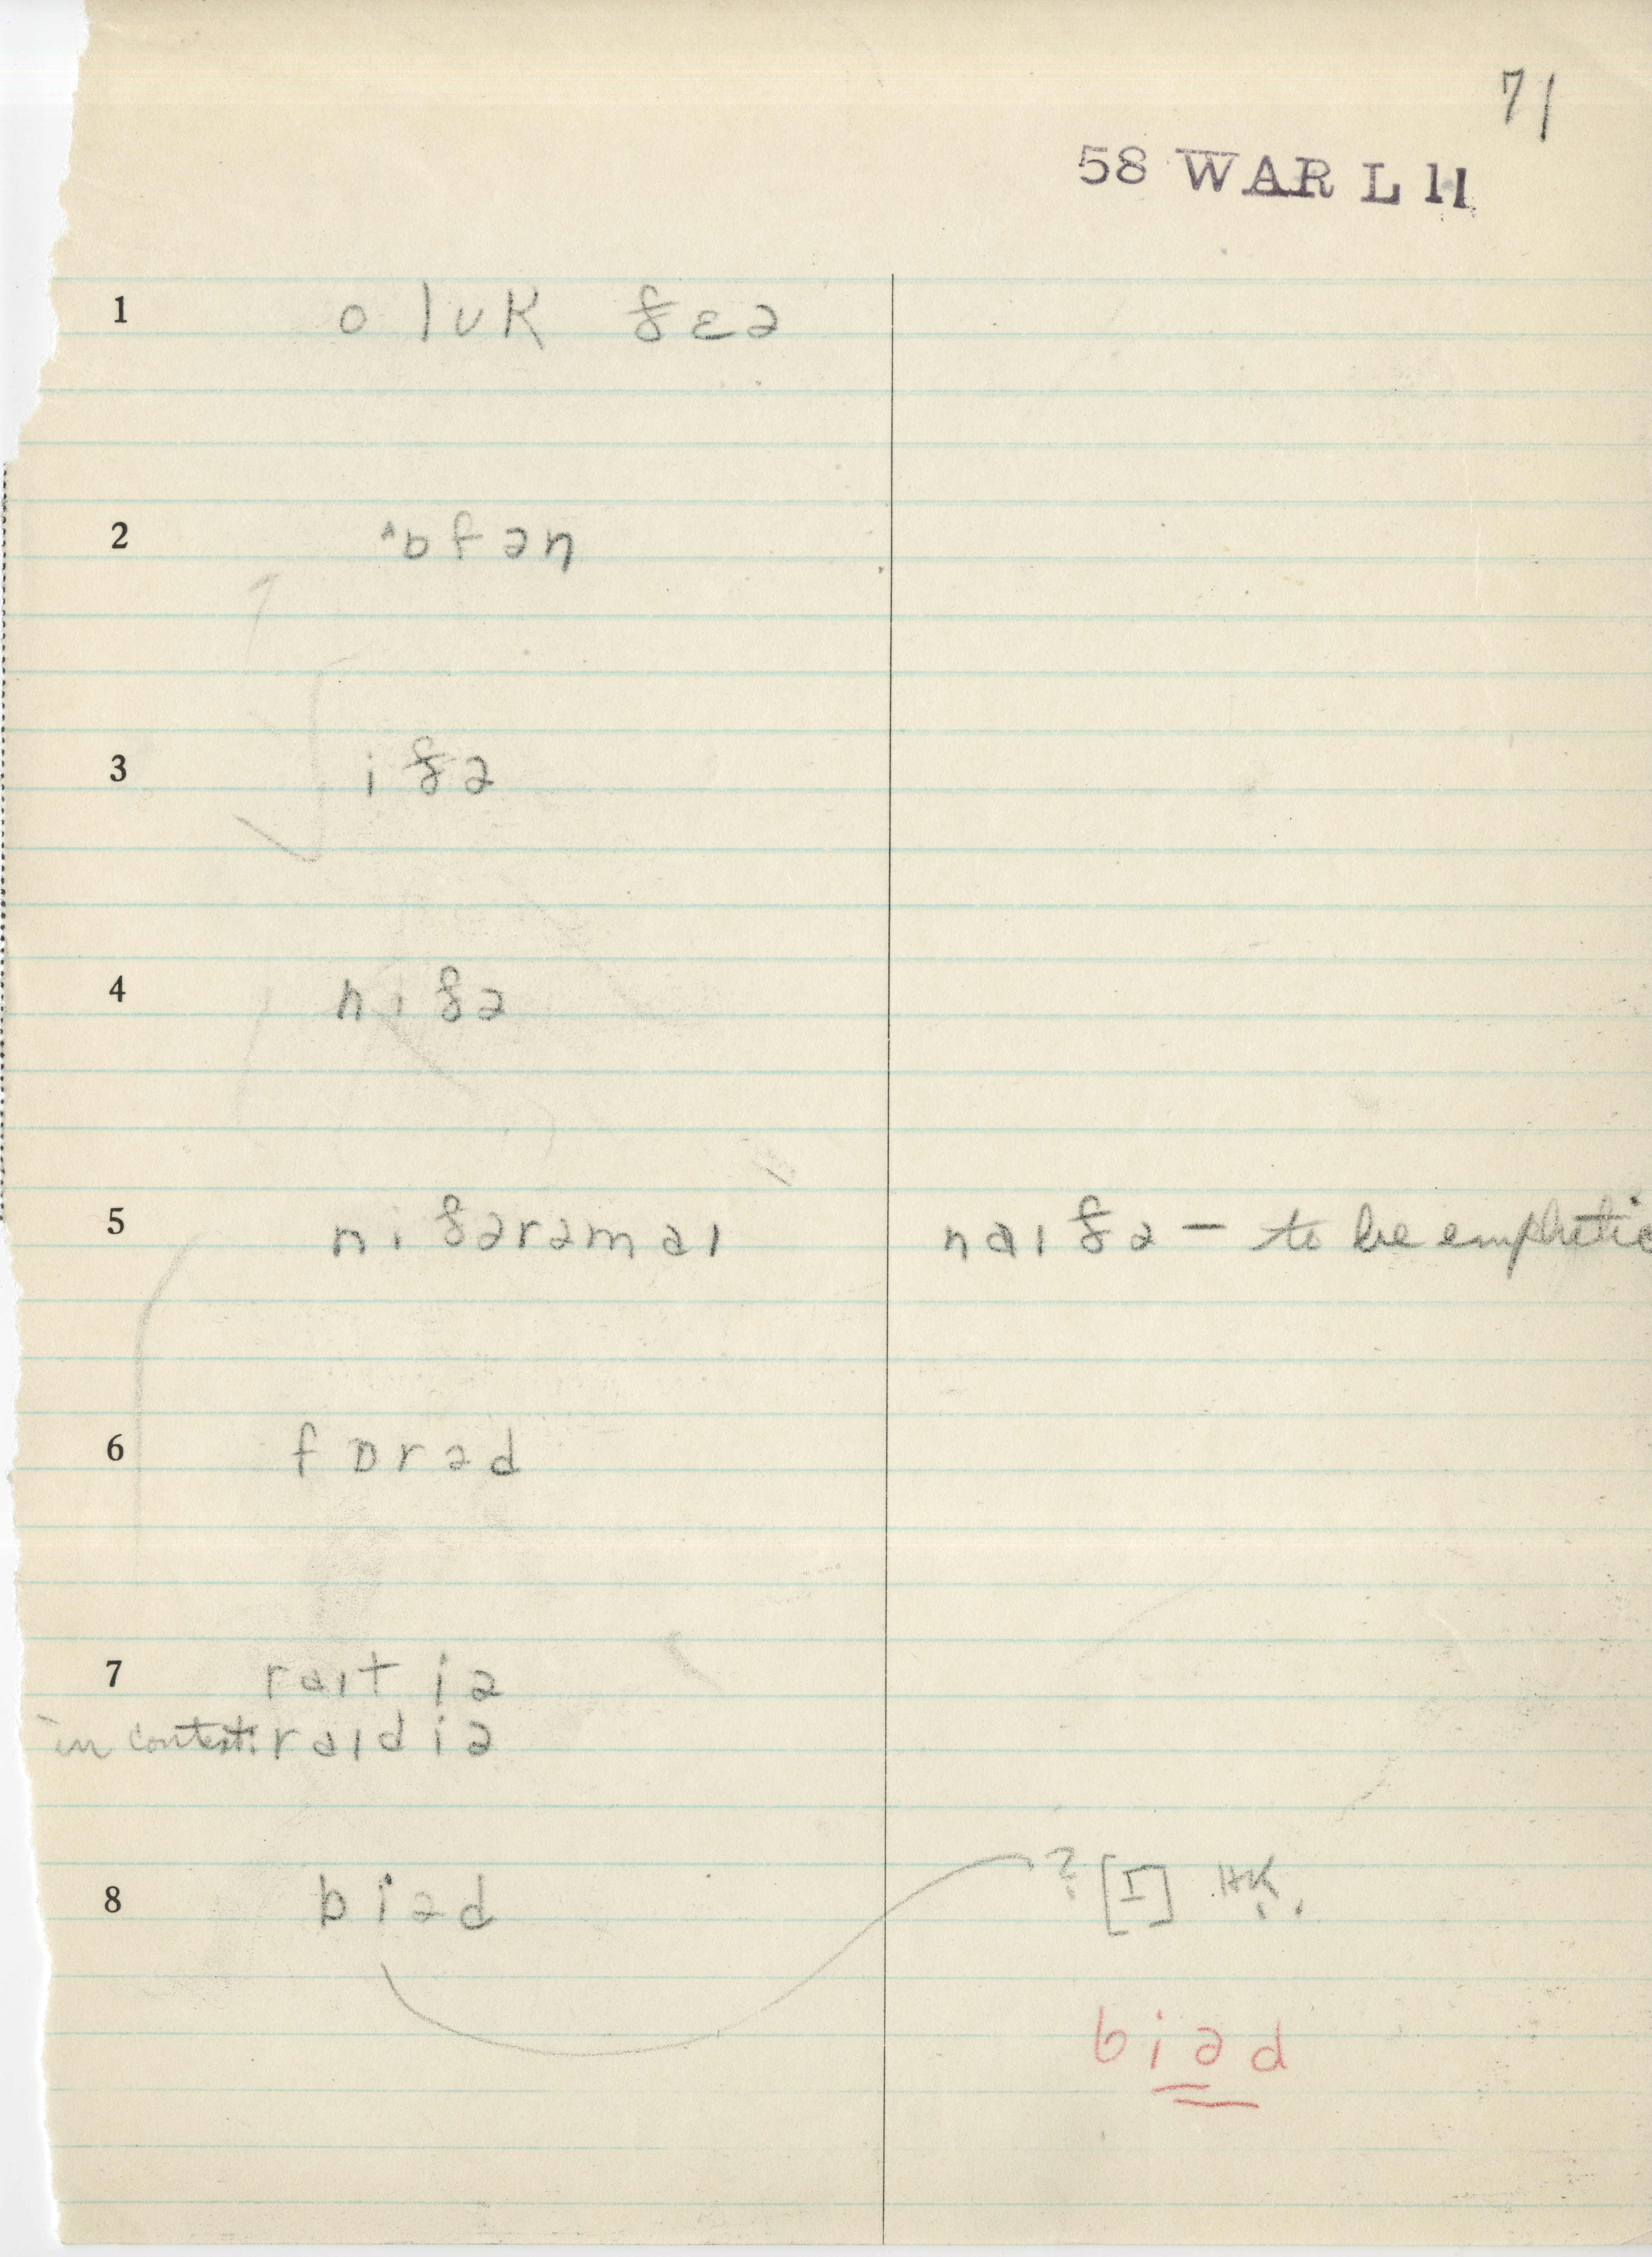 71
58 WAR L 11
1 o lʊk ðɛə
2 ˈɒfən
3 iðə
4 niðə
5 niðərəmaɪ naɪðə — to be emphatic
6 fɒrəd
7 raɪt iə
in context: raɪd iə
8 biəd ? [I] HK.
biəd